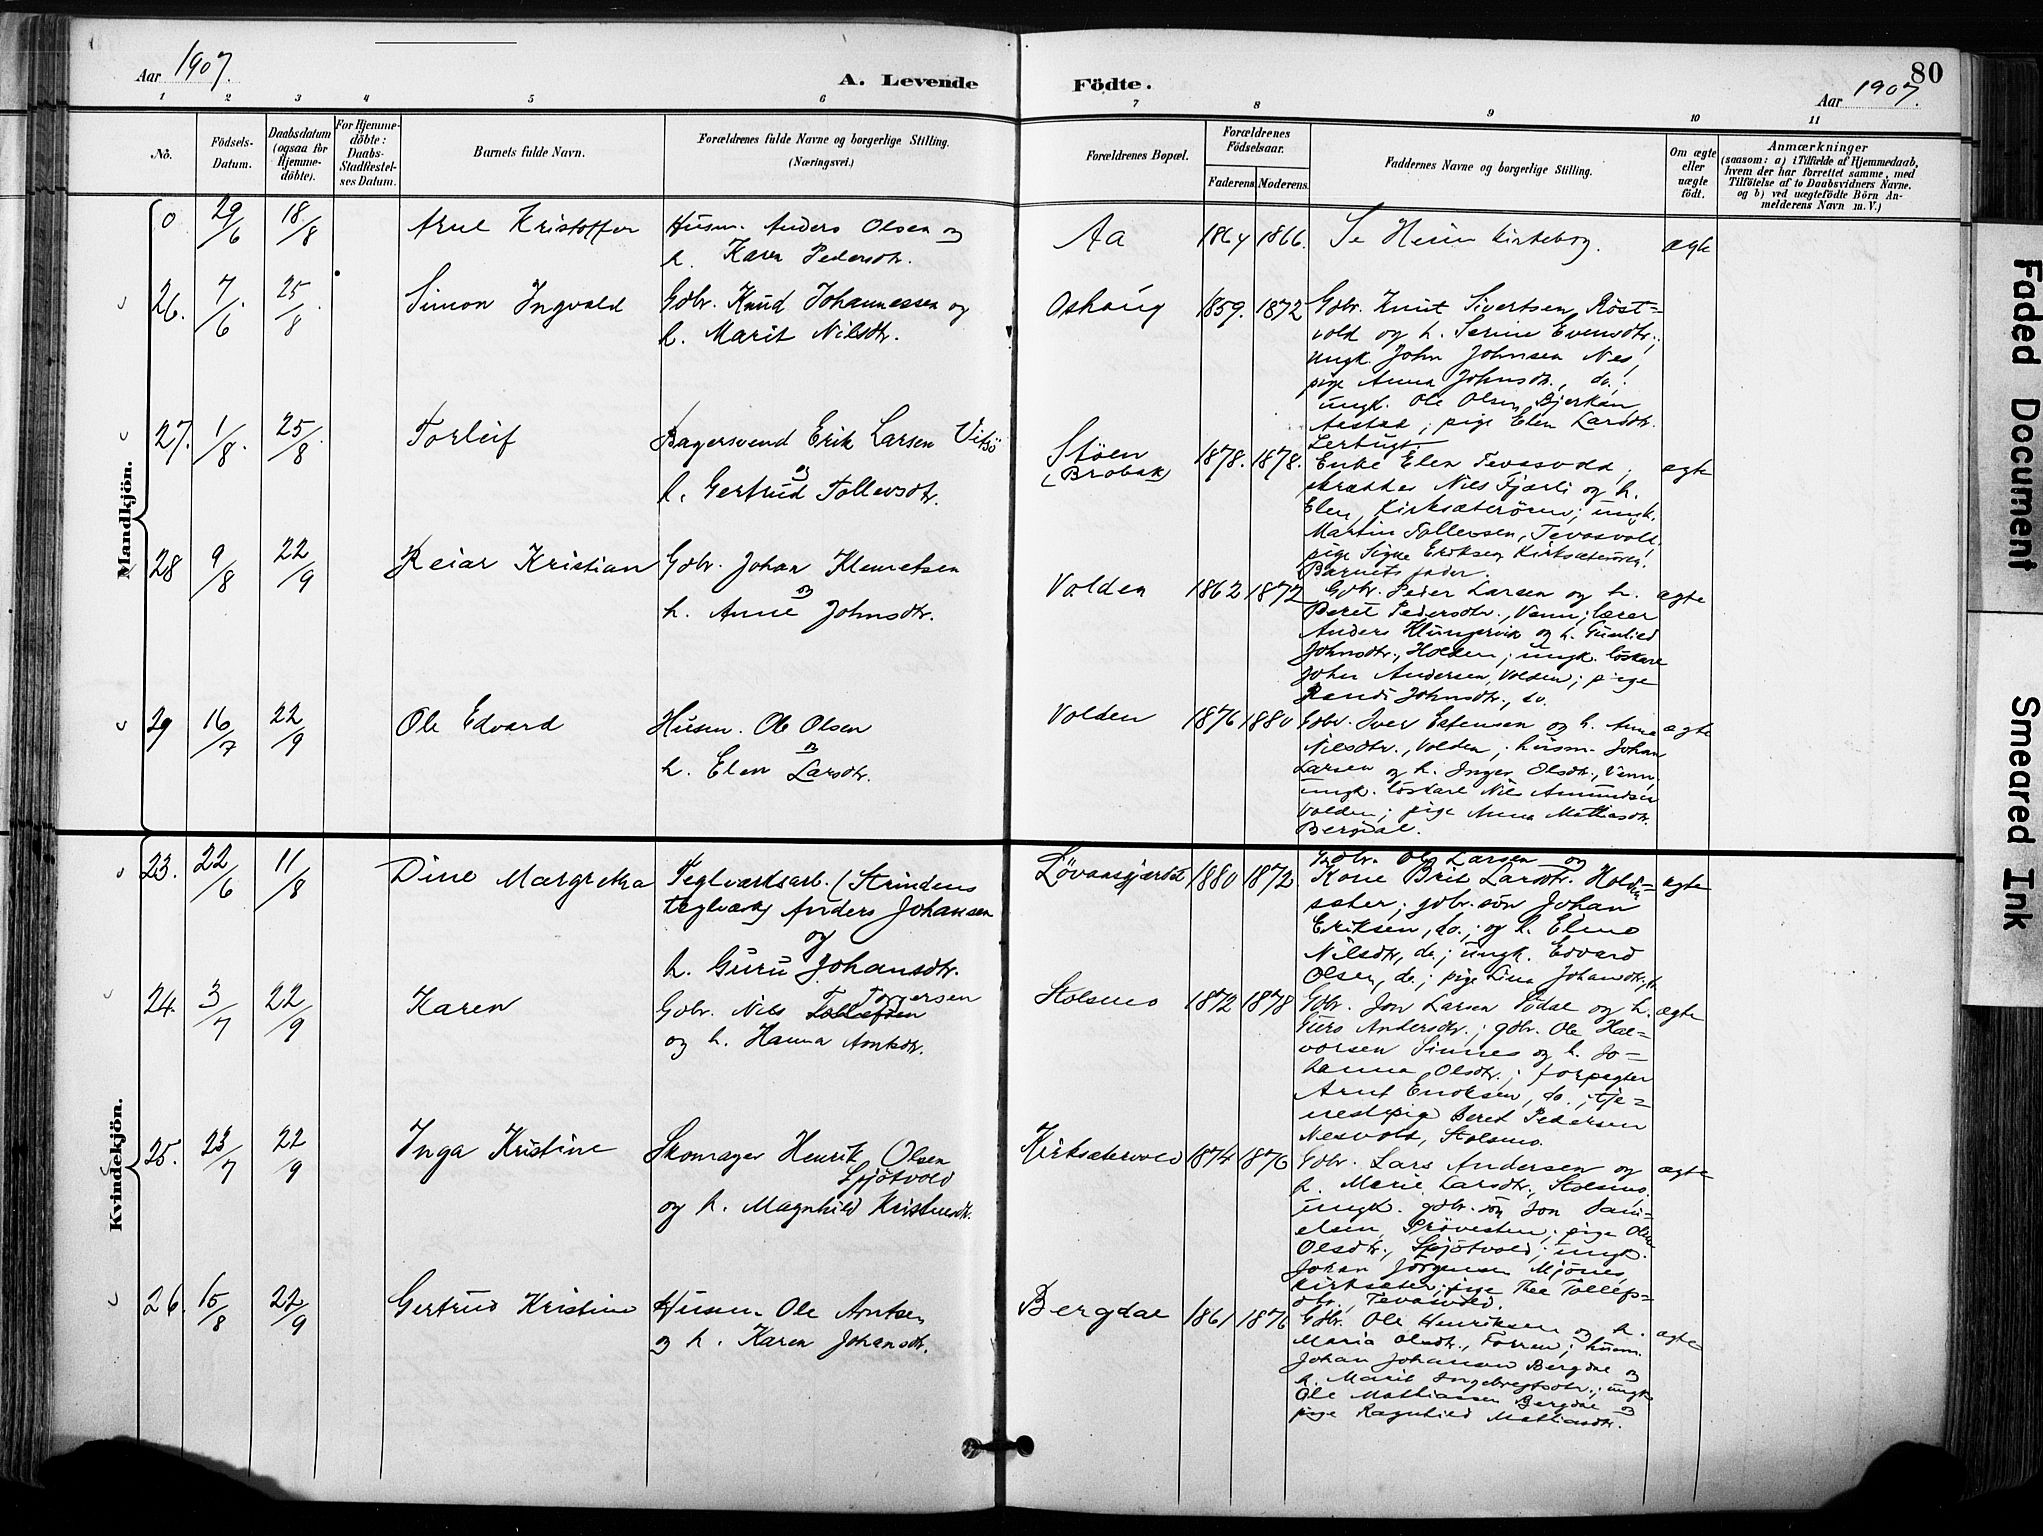 Aar 1907.
A. Levende
Födte.
80
Aar 1907.
1 2 3 4 5 6 7 8 9 10 11
No.
Födsels-
Datum.
Daabsdatum
(ogsaa for
Hjemme-
döbte).
For Hjemme-
döbte:
Daabs-
Stadfæstel-
ses Datum.
Barnets fulde Navn.
Forældrenes fulde Navne og borgerlige Stilling.
(Næringsvei.)
Forældrenes Bopæl.
Forældrenes
Födselsaar.
Faderens. Moderens.
Faddernes Navne og borgerlige Stilling.
Om ægte
eller
uægte
födt.
Anmærkninger
(saasom: a) i Tilfælde af Hjemmedaab,
hvem der har forrettet samme, med
Tilföielse af to Daabsvidners Navne.
og b) ved uægtefödte Börn An-
melderens Navn m. V.)
Mandkjön.
0 29/6 18/8 Arne Kristoffer Husm. Anders Olsen og
h. Karen Pedersdtr.
Aa 1864 1866. Se Heim kirkebog. ægte
26. 7/6 25/8 Simon Ingvald Gdbr. Knud Johannessen og
h. Marit Nilsdtr.
Oshaug 1859. 1872 Gdbr. Knut Sivertsen Röst-
vold og h. Serine Evensdtr.;
ungk. John Johnsen Nes;
pige Anna Johnsdtr., do.;
ungk. Ole Olsen Bjerkan
pige Elen Larsdtr.
27. 1/8. 25/8 Torleif Bagersvend Erik Larsen Vitsö
og
h. Gertrud Tollevsdtr.
Stöen
(Brobak)
1878. 1878. Enke Elen Tevasvold;
skrædder Nils Fjærli og h.
Elen, Kirksæterören; ungk.
Martin Tollevsen, Tevasvold
pige Signe Eriksen Kirksæterören;
Barnets fader.
ægte
28 9/8 22/9 Reiar Kristian Gdbr. Johan Klemetsen
og
h. Anne Johnsdtr.
Volden 1862 1872 Gdbr. Peder Larsen og h.
Beret Pedersdtr., Venn; lærer
Anders Klungervik og h. Gunhild
Johnsdtr., Holden; ungk. löskarl
John Andersen, Volden; pige
Randi Johnsdtr., do.
ægte
29 16/7 22/9 Ole Edvard Husm. Ole Olsen
og
h. Elen Larsdtr.
Volden 1876 1880 Gdbr. Iver Estensen og h. Anne
Nilsdtr., Volden; husm. Johan
Larsen og h. Inger Olsdtr., Venn;
ungk. löskarl Nils Amundsen
Volden; pige Anna Mathiasdtr.
Bergdal.
ægte
Kvindekjön.
23. 22/6 11/8 Dine Margretha Teglværksarb. (Strindens
teglværk) Anders Johansen
og
h. Guru Johansdtr.
1880 1872. Gdbr. Ole Larsen og
Kone Brit Larsdtr. Holden-
sæter; gdbr. sön Johan
Eriksen, do.; og h. Elene
Nilsdtr, do.; ungk. Edvard
Olsen, do.; pige Lina Johansdtr,
ægte
24. 3/7 22/9 Karen Gdbr. Nils Tollefsen Torgersen
og h. Hanna Arntsdtr.
Stolsmo 1872 1878 Gdbr. Jon Larsen Södal og h.
Guro Andersdtr.; gdbr. Ole Hal-
vorsen Sinnes og h. Jo-
hanna Olsdtr.; forpagter
Arnt Enoksen, do.; tje-
nestpige Beret Pedersen
Nesvold, Stolsmo.
ægte
25. 23/7 22/9 Inga Kristine Skomager Henrik Olsen
Spjötvold
og h. Magnhild Kristensdtr.
Kirksætervold 1874 1876 Gdbr. Lars Andersen og
h. Marie Larsdtr., Stolsmo;
ungk. gdbr. sön Jon Dani-
elsen, Prövesten; pige Oline
Olsdtr., Spjötvold; ungk.
Johan Jörgensen Mjönes,
Kirksæter; pige Thee Tollefs-
dtr., Tevasvold.
ægte
26. 15/8 22/9 Gertrud Kristine Husm. Ole Arntsen
og h. Karen Johansdtr.
Bergdal 1861 1876 Gdbr. Ole Henriksen og h.
Maria Olsdtr., Forren; husm.
Johan Johansen Bergdal og
h. Marit Ingebregtsdtr.; ungk.
Ole Mathiassen Bergdal og
pige Ragnhild Mathiasdtr.
ægte
Faded Document
Smeared Ink